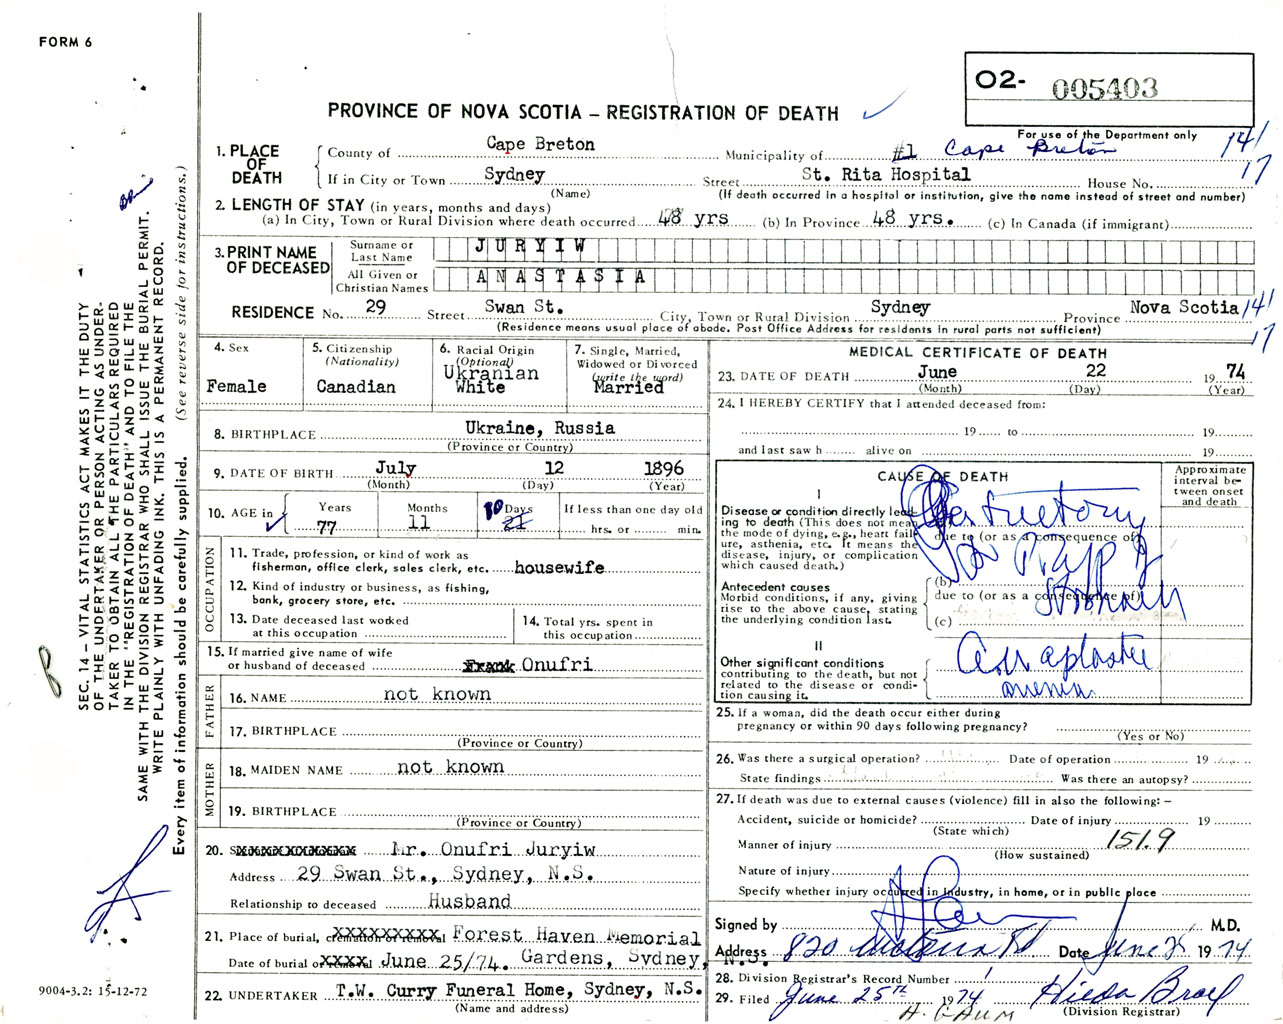 FORM 6
02- 005403
For use of the Department only
PROVINCE OF NOVA SCOTIA – REGISTRATION OF DEATH
1. PLACE OF DEATH
County of Cape Breton Municipality of #1 Cape Breton 141
If in City or Town Sydney Street St. Rita Hospital House No. 17
(Name) (If death occurred in a hospital or institution, give the name instead of street and number)
2. LENGTH OF STAY (in years, months and days)
(a) In City, Town or Rural Division where death occurred 48 yrs (b) In Province 48 yrs. (c) In Canada (if immigrant)
3. PRINT NAME OF DECEASED
Surname or Last Name JURYIW
All Given or Christian Names ANASTASIA
RESIDENCE No. 29 Street Swan St. City, Town or Rural Division Sydney Province Nova Scotia 141
(Residence means usual place of abode. Post Office Address for residents in rural parts not sufficient) 17
4. Sex
Female
5. Citizenship
(Nationality)
Canadian
6. Racial Origin
(Optional)
Ukranian
White
7. Single, Married,
Widowed or Divorced
(write the word)
Married
8. BIRTHPLACE Ukraine, Russia
(Province or Country)
9. DATE OF BIRTH July 12 1896
(Month) (Day) (Year)
10. AGE in Years Months Days If less than one day old
77 11 10 21 hrs. or min.
OCCUPATION
11. Trade, profession, or kind of work as
fisherman, office clerk, sales clerk, etc. housewife
12. Kind of industry or business, as fishing,
bank, grocery store, etc.
13. Date deceased last worked
at this occupation
14. Total yrs. spent in
this occupation
15. If married give name of wife
or husband of deceased Frank Onufri
FATHER
16. NAME not known
17. BIRTHPLACE
(Province or Country)
MOTHER
18. MAIDEN NAME not known
19. BIRTHPLACE
(Province or Country)
20. Mr. Onufri Juryiw
Address 29 Swan St., Sydney, N.S.
Relationship to deceased Husband
21. Place of burial, cremation or removal Forest Haven Memorial
Date of burial or removal June 25/74. Gardens, Sydney, N.S.
22. UNDERTAKER T.W. Curry Funeral Home, Sydney, N.S.
(Name and address)
MEDICAL CERTIFICATE OF DEATH
23. DATE OF DEATH June 22 19 74
(Month) (Day) (Year)
24. I HEREBY CERTIFY that I attended deceased from:
19 to 19
and last saw h alive on 19
CAUSE OF DEATH
Approximate
interval be-
tween onset
and death
I
Disease or condition directly lead-
ing to death (This does not mean
the mode of dying, e.g., heart fail-
ure, asthenia, etc. It means the
disease, injury, or complication
which caused death.)
due to (or as a consequence of)
Antecedent causes
Morbid conditions, if any, giving
rise to the above cause, stating
the underlying condition last.
(b)
due to (or as a consequence of)
stomach
(c)
II
Other significant conditions
contributing to the death, but not
related to the disease or condi-
tion causing it.
aplastic
anemia
25. If a woman, did the death occur either during
pregnancy or within 90 days following pregnancy?
(Yes or No)
26. Was there a surgical operation? Date of operation 19
State findings Was there an autopsy?
27. If death was due to external causes (violence) fill in also the following: –
Accident, suicide or homicide? Date of injury 19
(State which)
Manner of injury 151.9
(How sustained)
Nature of injury
Specify whether injury occurred in Industry, in home, or in public place
Signed by M.D.
Address 820 Victoria Rd Date June 25 1974
28. Division Registrar's Record Number 1
29. Filed June 25TH 1974
(Division Registrar)
SEC. 14 – VITAL STATISTICS ACT MAKES IT THE DUTY
OF THE UNDERTAKER OR PERSON ACTING AS UNDER-
TAKER TO OBTAIN ALL THE PARTICULARS REQUIRED
IN THE "REGISTRATION OF DEATH" AND TO FILE THE
SAME WITH THE DIVISION REGISTRAR WHO SHALL ISSUE THE BURIAL PERMIT.
WRITE PLAINLY WITH UNFADING INK. THIS IS A PERMANENT RECORD.
Every item of information should be carefully supplied. (See reverse side for instructions.)
9004-3.2: 15-12-72